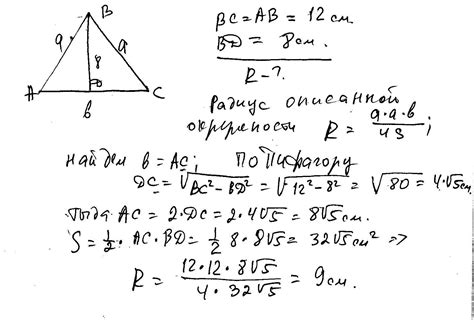 B
a
a
8
D
A
C
в
BC=AB=12см.
BD=8см.
R-?.
Радиус описанной
окружности R=a·a·b/4S;
найдем b=AC; по Пифагору
DC=√BC²-BD²=√12²-8²=√80=4·√5см.
тогда AC=2·DC=2·4√5=8√5см.
S=1/2·AC·BD=1/2 8·8√5=32√5см² =>
R=12·12·8√5/4·32√5=9см.